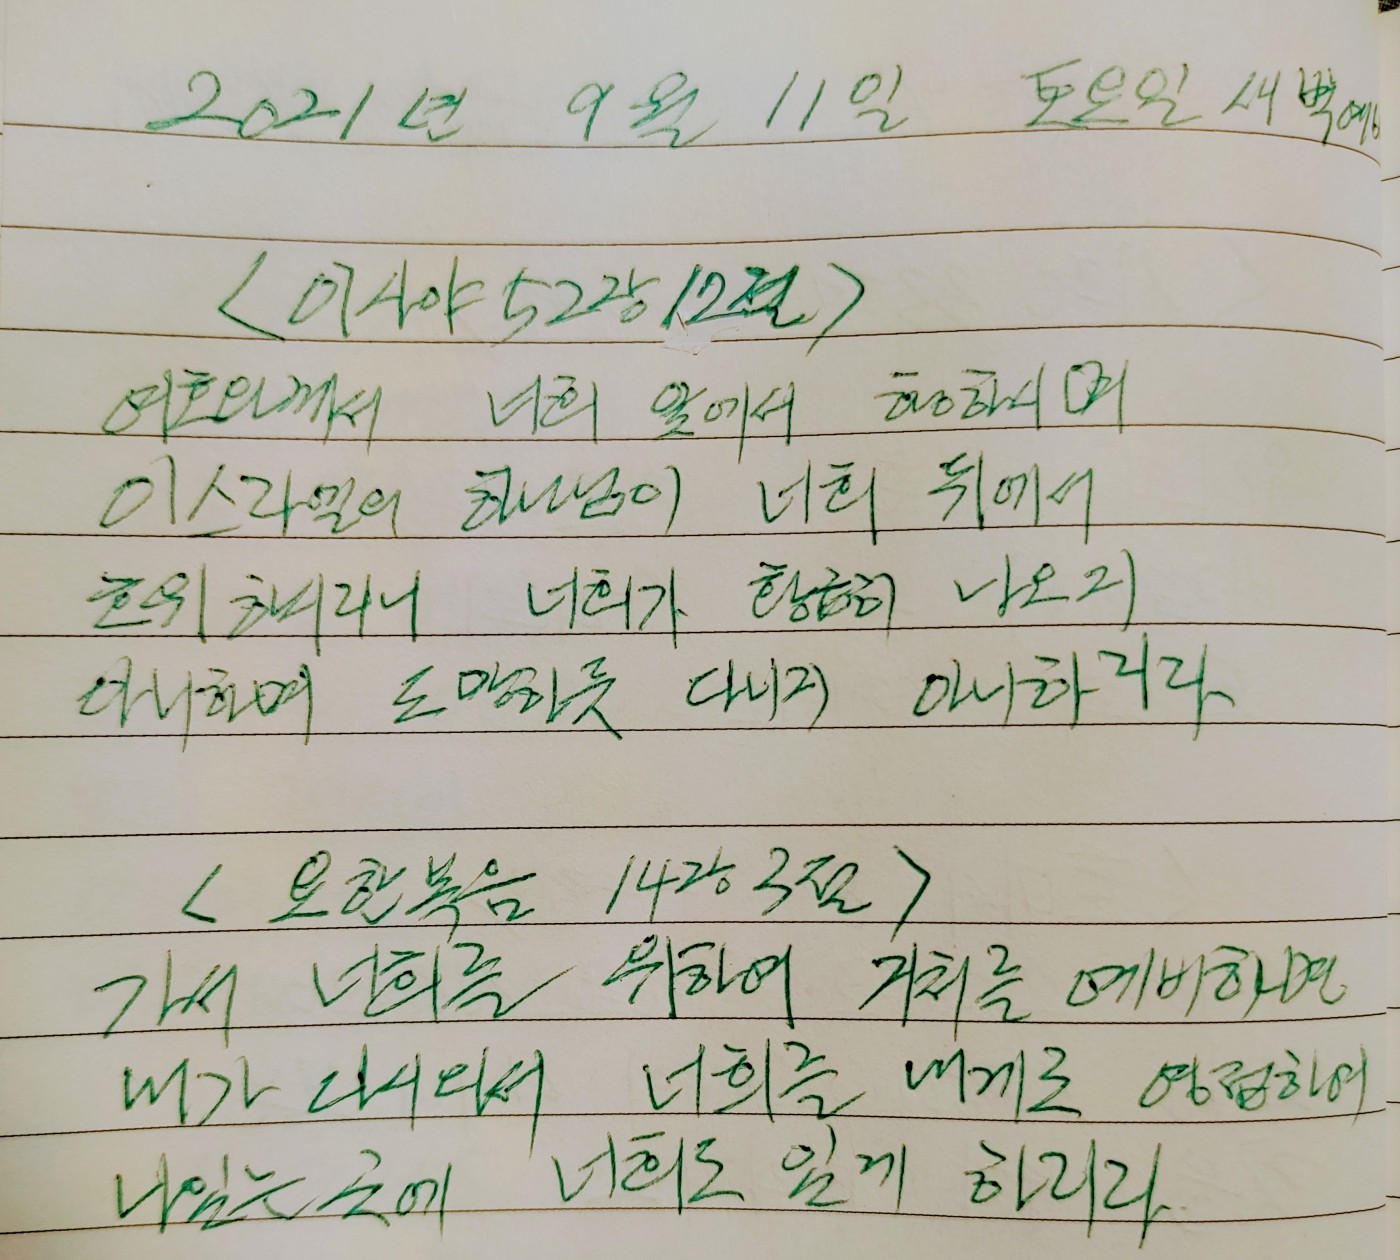 2021년 9월 11일 토요일 새벽예
<이사야 52장 12절>
여호와께서 너희 앞에서 행하시며
이스라엘의 하나님이 너희 뒤에서
호위하시리니 너희가 황급히 나오지
아니하며 도망하듯 다니지 아니하리라
<요한복음 14장 3절>
가서 너희를 위하여 거처를 예비하면
내가 다시 와서 너희를 내게로 영접하여
나 있는 곳에 너희도 있게 하리라.